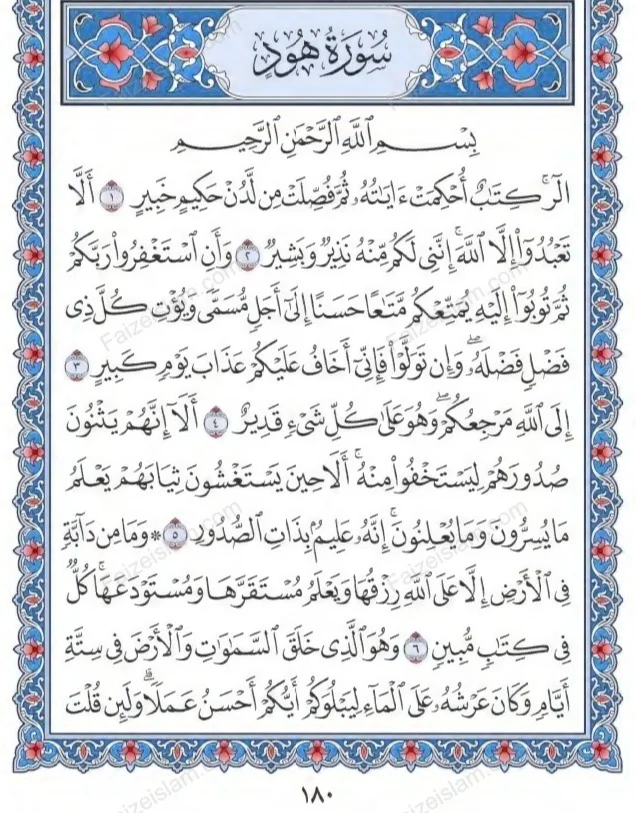 سُورَةُ هُودٍ
بِسْمِ ٱللَّهِ ٱلرَّحْمَٰنِ ٱلرَّحِيمِ
الٓرۚ كِتَٰبٌ أُحْكِمَتْ ءَايَٰتُهُۥ ثُمَّ فُصِّلَتْ مِن لَّدُنْ حَكِيمٍ خَبِيرٍ ١ أَلَّا
تَعْبُدُوٓاْ إِلَّا ٱللَّهَۚ إِنَّنِى لَكُم مِّنْهُ نَذِيرٌ وَبَشِيرٌ ٢ وَأَنِ ٱسْتَغْفِرُواْ رَبَّكُمْ
ثُمَّ تُوبُوٓاْ إِلَيْهِ يُمَتِّعْكُم مَّتَٰعًا حَسَنًا إِلَىٰٓ أَجَلٍ مُّسَمًّى وَيُؤْتِ كُلَّ ذِى
فَضْلٍ فَضْلَهُۥۖ وَإِن تَوَلَّوْاْ فَإِنِّىٓ أَخَافُ عَلَيْكُمْ عَذَابَ يَوْمٍ كَبِيرٍ ٣
إِلَى ٱللَّهِ مَرْجِعُكُمْۖ وَهُوَ عَلَىٰ كُلِّ شَىْءٍ قَدِيرٌ ٤ أَلَآ إِنَّهُمْ يَثْنُونَ
صُدُورَهُمْ لِيَسْتَخْفُواْ مِنْهُۚ أَلَا حِينَ يَسْتَغْشُونَ ثِيَابَهُمْ يَعْلَمُ
مَا يُسِرُّونَ وَمَا يُعْلِنُونَۚ إِنَّهُۥ عَلِيمٌۢ بِذَاتِ ٱلصُّدُورِ ٥ * وَمَا مِن دَآبَّةٍ
فِى ٱلْأَرْضِ إِلَّا عَلَى ٱللَّهِ رِزْقُهَا وَيَعْلَمُ مُسْتَقَرَّهَا وَمُسْتَوْدَعَهَاۚ كُلٌّ
فِى كِتَٰبٍ مُّبِينٍ ٦ وَهُوَ ٱلَّذِى خَلَقَ ٱلسَّمَٰوَٰتِ وَٱلْأَرْضَ فِى سِتَّةِ
أَيَّامٍ وَكَانَ عَرْشُهُۥ عَلَى ٱلْمَآءِ لِيَبْلُوَكُمْ أَيُّكُمْ أَحْسَنُ عَمَلًاۗ وَلَئِن قُلْتَ
١٨٠
Faizeislam.com